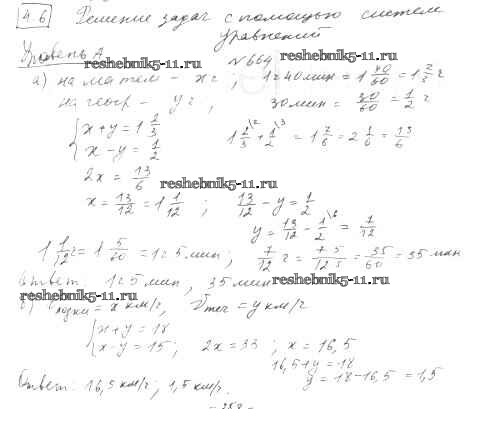 4.6 Решение задач с помощью систем
уравнений
Уровень А
reshebnik5-11.ru
№664
reshebnik5-11.ru
а) на матем – x ч ; 1ч 40 мин = 1 40/60 = 1 2/3 ч
на геогр – y ч ; 30 мин = 30/60 = 1/2 ч
{ x + y = 1 2/3
x – y = 1/2
1 2/3 + 1/2 = 1 7/6 = 2 1/6 = 13/6
2x = 13/6
reshebnik5-11.ru
x = 13/12 = 1 1/12 ; 13/12 – y = 1/2
y = 13/12 – 1/2 = 7/12
1 1/12 ч = 1 5/60 = 1ч 5 мин ; 7/12 ч = 7·5/12·5 = 35/60 = 35 мин
Ответ 1ч 5 мин, 35 мин
reshebnik5-11.ru
reshebnik5-11.ru
б) Vлодки = x км/ч, Vтеч = y км/ч
{ x + y = 18
x – y = 15 ; 2x = 33 ; x = 16,5
16,5 + y = 18
y = 18 – 16,5 = 1,5
Ответ: 16,5 км/ч; 1,5 км/ч.